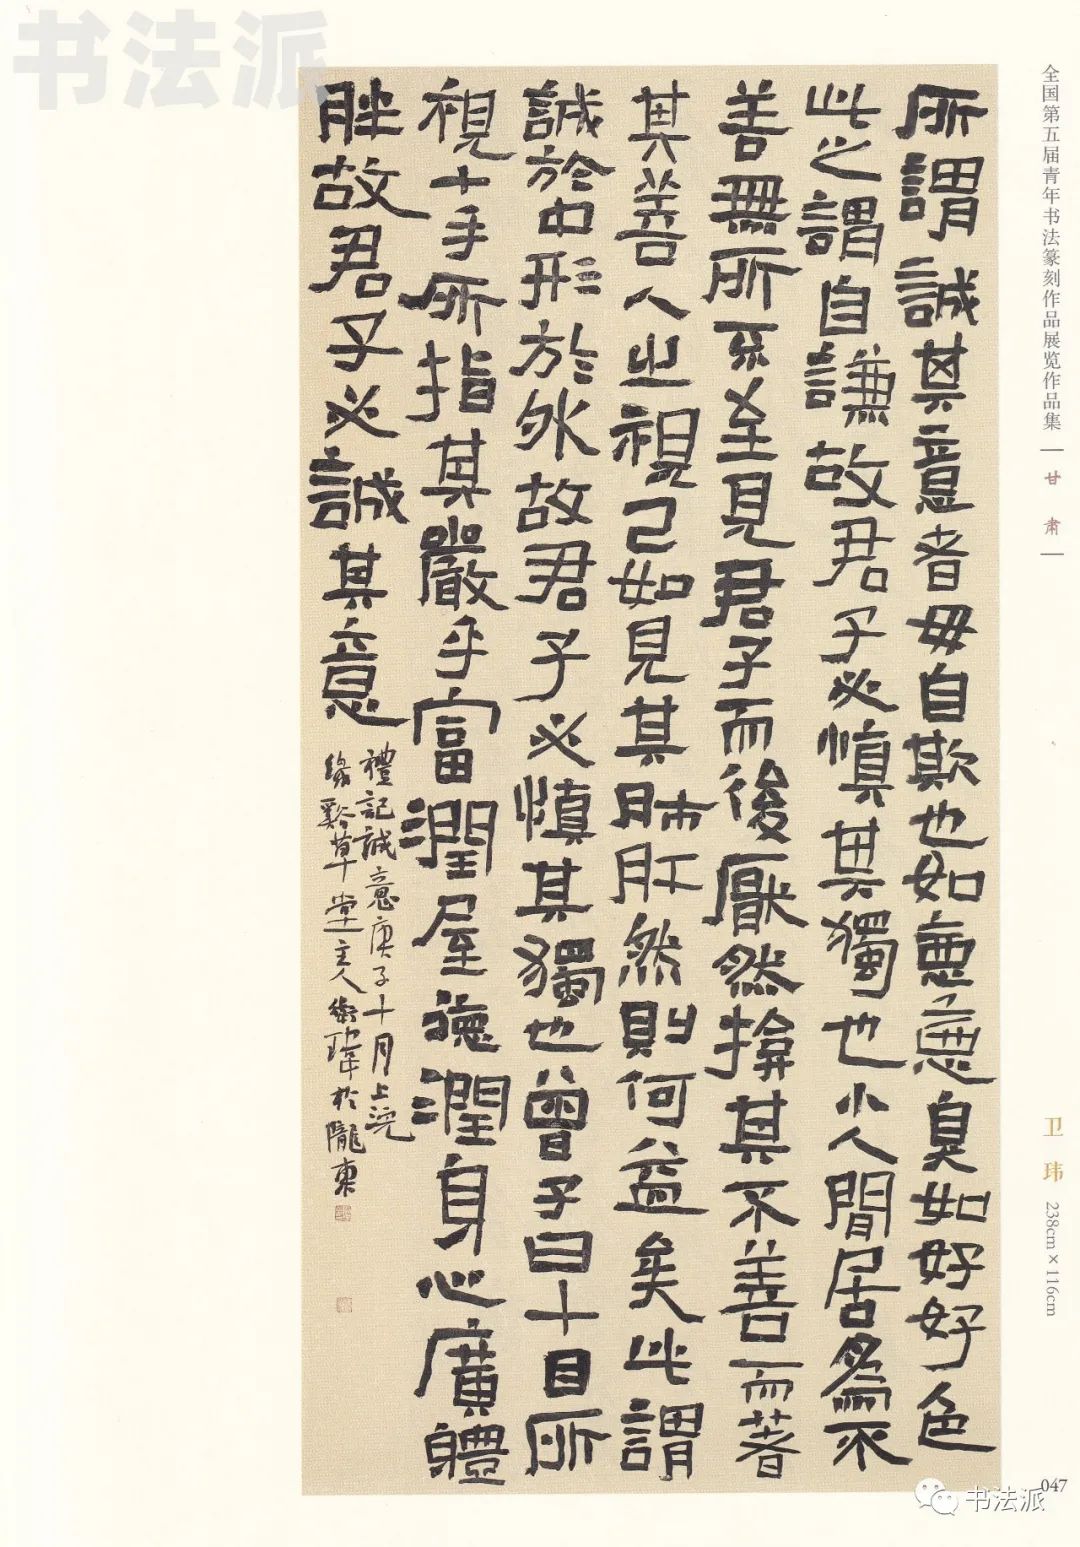 书法派
全国第五届青年书法篆刻作品展览作品集
甘肃
卫玮 238cm×116cm
所謂誠其意者毋自欺也如惡惡臭如好好色
此之謂自謙故君子必慎其獨也小人間居為不
善無所不至見君子而後厭然揜其不善而著
其善人之視己如見其肺肝然則何益矣此謂
誠於中形於外故君子必慎其獨也曾子曰十目所
視十手所指其嚴乎富潤屋德潤身心廣體
胖故君子必誠其意
禮記誠意庚子十月上浣
谿草堂主人衛瑋於隴東
047
书法派